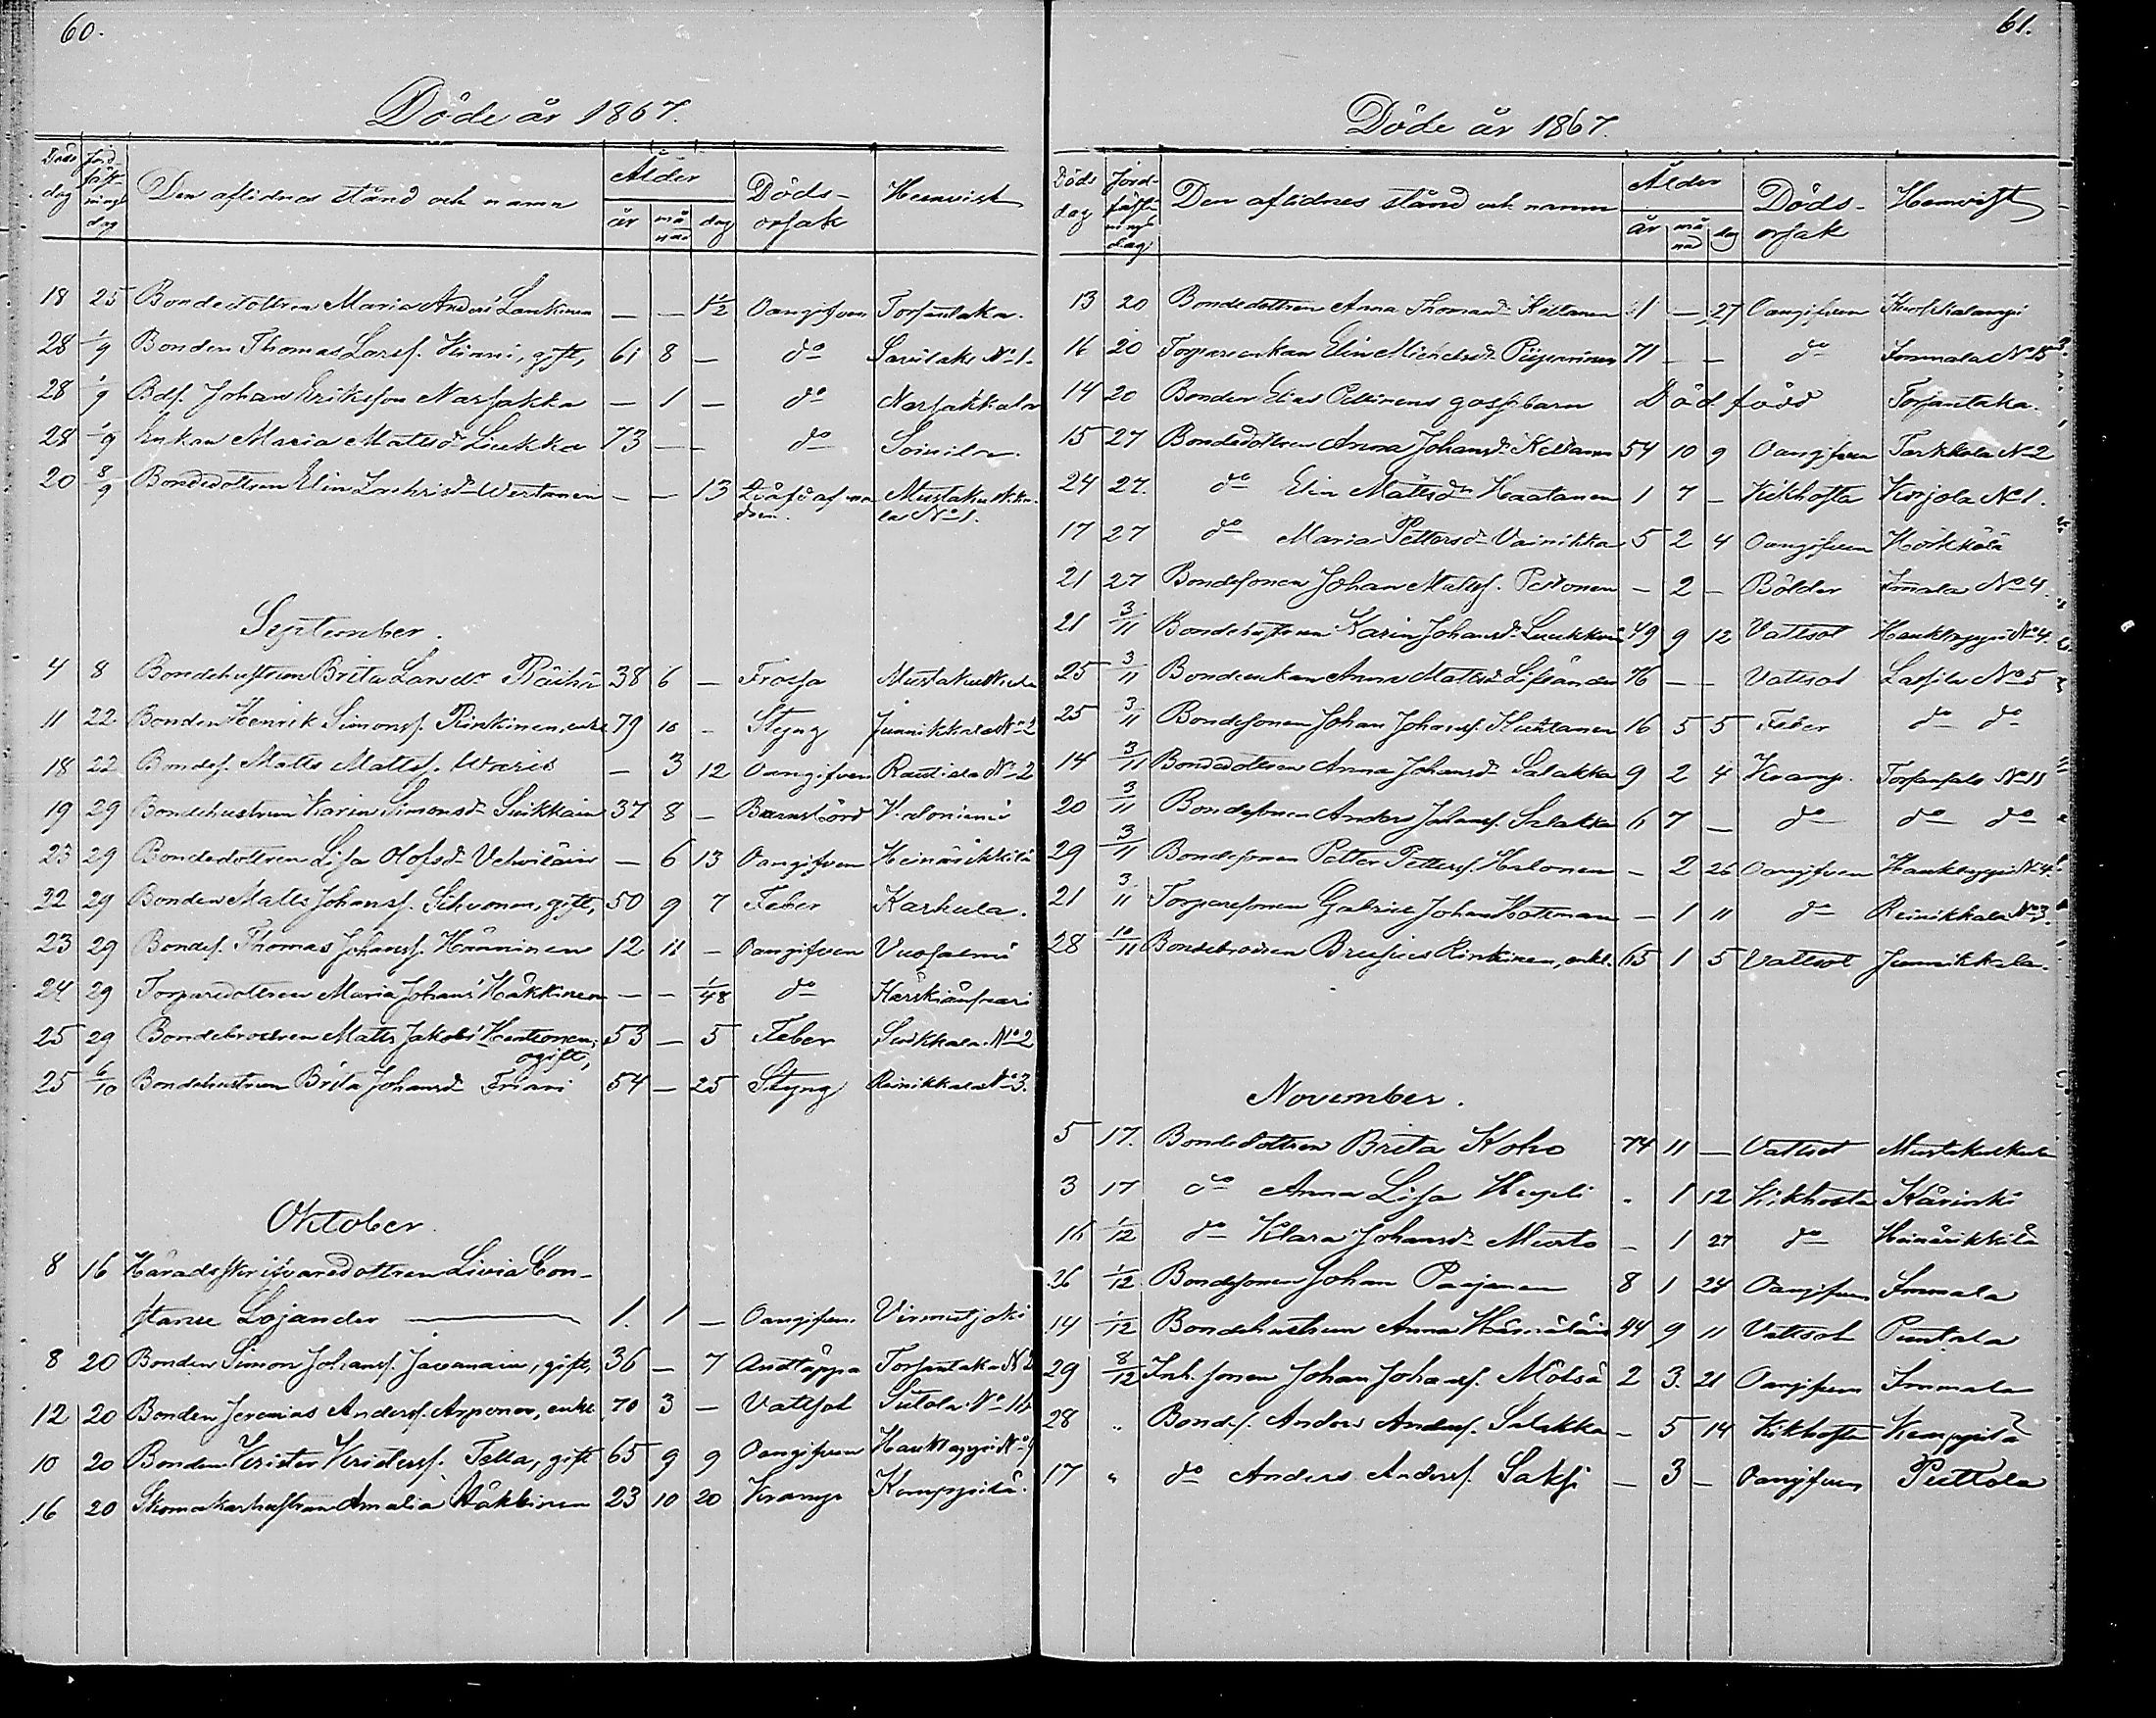 60.
Döde år 1867.
Döds dag | Jordfästnings dag | Den aflidnes stånd och namn | Ålder år månad dag | Dödsorsak | Hemvist
18 25 Bondedottren Maria Anders Lankinen — — 1/2 Oangifven Torsantaka.
28 1/9 Bonden Thomas Larsf. Hinni, gift, 61 8 — do Savilaks No 1.
28 1/9 Bdf. Johan Eriksson Narsakka — 1 — do Narsakkala
28 1/9 Enkan Maria Matsd. Liukka 73 — — do Soinila.
20 8/9 Bondedottren Elin Wertanen — — 13 Qväfd af modren. Mustakulkkala No 1.
September.
4 8 Bondehustrun Brita Larsdr Räihä 38 6 — Frossa Mustakulkkala
11 22 Bonden Henrik Simonsf. Rinkinen, enkl. 79 10 - Styng Junnikkala No 2
18 22 Bondef. Matts Mattsf. Waris — 3 12 Oangifven Rautiala No 2
19 29 Bondehustrun Karin Simonsd. Suikkain 37 8 — Barnsbörd Kaloniemi
23 29 Bondedottren Lisa Olofsd. Vehviläin — 6 13 Oangifven Heinäsikkilä
22 29 Bonden Matts Johansf. Sihvonen, gift, 50 9 7 Feber Karhula.
23 29 Bondef. Thomas Johansf. Hänninen 12 11 — Oangifven Vuosalmi
24 29 Torparedottren Maria Johans Häkkinen — — 1/48 do Härskiänsaari
25 29 Bondebrodren Matts Jakobs Hentionen, ogift, 53 — 5 Feber Suikkala No 2
25 6/10 Bondehustrun Brita Johansd. Friari 54 — 25 Styng Reinikkala No 3.
Oktober.
8 16 Häradsskrifvaredottren Livia Con-
stance Lojander 1. 1 — Oangifven Virmutjoki
8 20 Bonden Simon Johansf. Javanain, gift, 36 — 7 Andtäppa Torsantaka No 2
12 20 Bonden Jeremias Andersf. Arponen, enkl 70 3 — Vattsot Sutola No 16
10 20 Bonden Krister Kristersf. Tella, gift 65 9 9 Oangifven Hauklappi No 9
16 20 Skomakarhustrun Amalia Häkkinen 23 10 20 Kramp Kemppilä.
61.
Döde år 1867.
Döds dag | Jordfästnings dag | Den aflidnes stånd och namn | Ålder år månad dag | Dödsorsak | Hemvist
13 20 Bondedottren Anna Thomasd. Kiltanen 1 — 27 Oangifven
16 20 Torpareenkan Elin Michelsd. Piiparinen 71 — — do Immala No 15
14 20 Bonden Elias Pellinens gossebarn Dödfödd Torsantaka.
15 27 Bondedottren Anna Johansd. Kettanen 54 10 9 Oangifven Tarkkola No 2
24 27. do Elin Mattsdr Haatanen 1 7 — Kikhosta Kirjola No 1.
17 27 do Maria Pettersd. Vainikka 5 2 4 Oangifven Hörkkölä
21 27 Bondesonen Johan Matsf. Pertonen — 2 — Bölder Immala No 4.
21 3/11 Bondehustrun Karin Johansd. Luukkain 49 9 12 Vattsot Hauklappi No 4.
25 3/11 Bondeenkan Anna Mattsd. Lifländer 76 — — Vattsot Lassila No 5
25 3/11 Bondesonen Johan Johansf. Huhtanen 16 5 5 Feber do do
14 3/11 Bondedottren Anna Johansd. Salakka 9 2 4 Kramp. Torsansalo No 11
20 3/11 Bondesonen Anders Johansf. Salakka 6 7 — do do do
29 3/11 Bondesonen Petter Pettersf. Halonen — 2 26 Oangifven Hauklappi No 4
21 3/11 Torparesonen Gabriel Johan Hottman — 1 11 do Reinikkala No 3.
28 10/11 Bondebrodren Brusius Rinkinen, enkl. 65 1 5 Vattsot Junnikkala.
November.
5 17. Bondedottren Brita Koho 74 11 — Vattsot Mustakulkkala
3 17 do Anna Lisa Heyeli - 1 12 Kikhosta Kärinki
16 1/12 do Klara Johansd. Musto — 1 27 do Heinäsikkilä
26 1/12 Bondesonen Johan Paajanen 8 1 24 Oangifven Immala
14 1/12 Bondehustrun Anna Hämäläin 44 9 11 Vattsot Puntala
29 8/12 Inh. sonen Johan Johansf. Mölsä 2 3. 21 Oangifven Immala
28 " Bondef. Anders Andersf. Salakka — 5 14 Kikhosta Kemppilä
17 " do Anders Andersf. Saksi — 3 — Oangifven Puttola